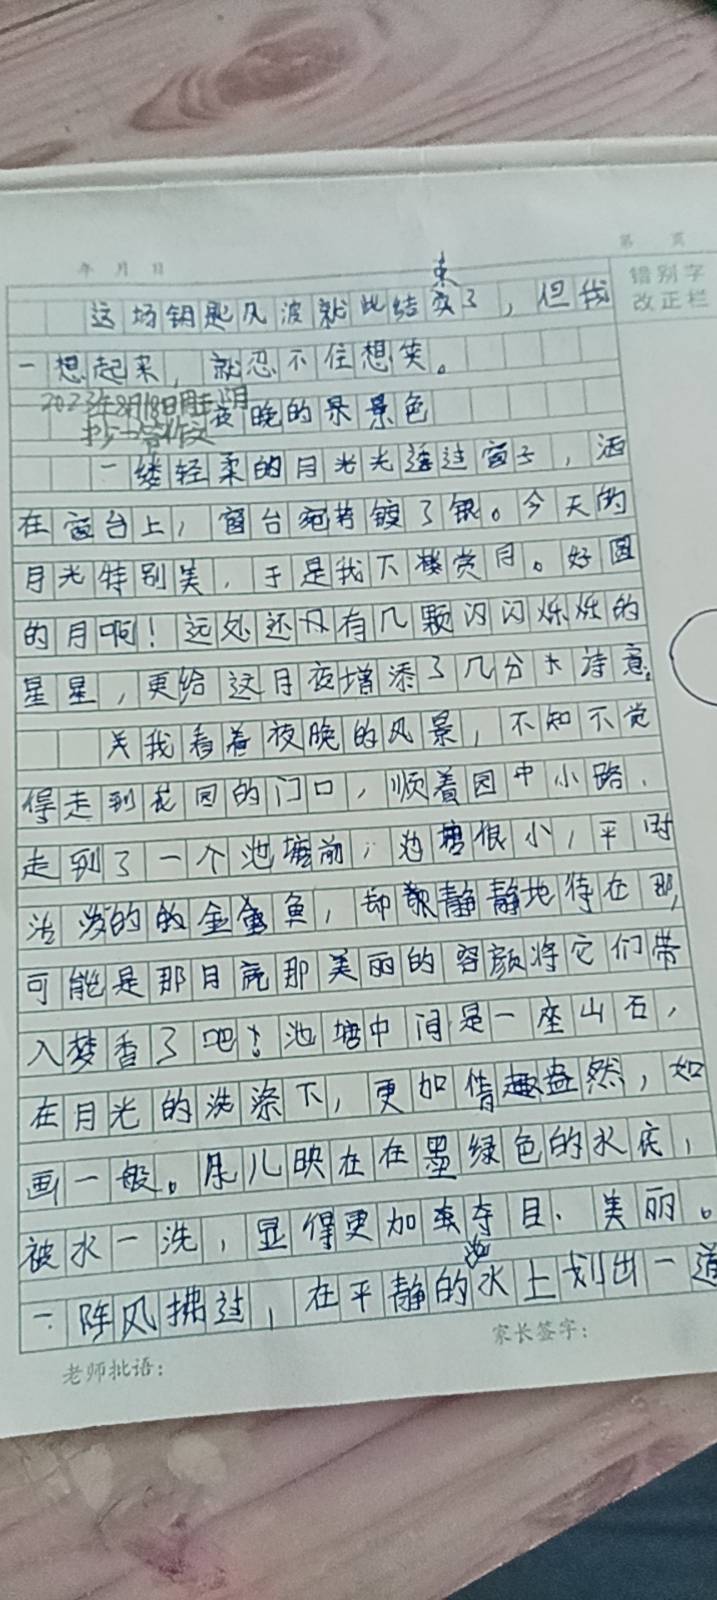 第 页
年 月 日
错别字
改正栏
束
这场钥匙风波就此结了，但我
一想起来，就忍不住想笑。
2023年8月18日 阴
抄一篇作文
夜晚的景色
一缕轻柔的月光光透过窗子，洒
在窗台上，窗台宛若镀了银。今天的
月光特别美，于是我下楼赏月。好圆
的月啊！远处还有几颗闪闪烁烁的
星星，更给这月夜增添了几分诗意。
我看着夜晚的风景，不知不觉
得走到花园的门口，顺着园中小路，
走到了一个池塘前，池塘很小，平时
活泼的的金鱼，却静静地待在那，
可能是那月亮那美丽的容颜将它们带
入梦香了吧！池塘中间是一座山石，
在月光的洗涤下，更加情趣盎然，如
画一般。月儿映在在墨绿色的水底，
被水一洗，显得更加夺目、美丽。
一阵风拂过，在平静的水上划出一道
家长签字：
老师批语：